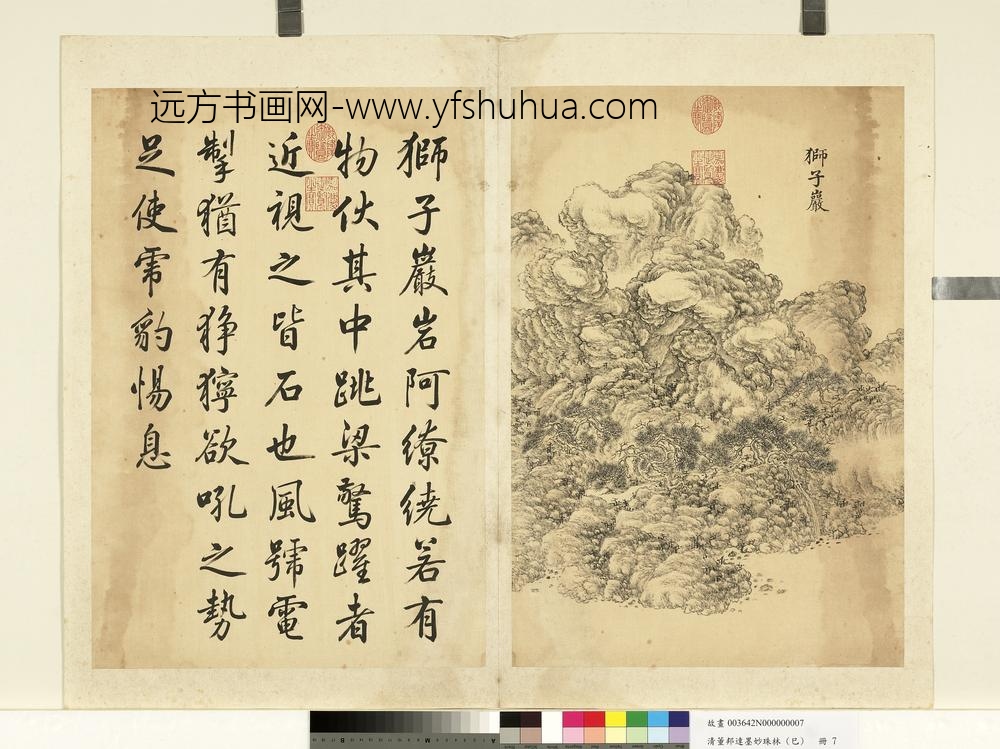 远方书画网-www.yfshuhua.com
獅子巖
獅子巖岩阿繚繞若有
物伏其中跳梁驚躍者
近視之皆石也風號電
掣猶有狰獰欲吼之勢
足使虎豹惕息
故畫 003642N000000007
清董邦達墨妙珠林（巳） 冊 7